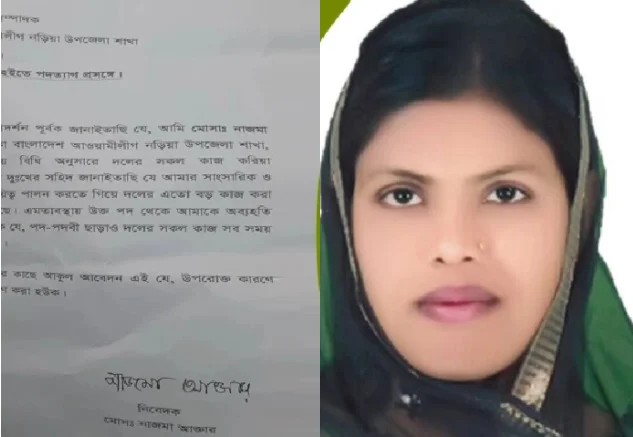 সম্পাদক
মীলীগ নড়িয়া উপজেলা শাখা
হইতে পদত্যাগ প্রসঙ্গে।
দর্শন পূর্বক জানাইতেছি যে, আমি মোসাঃ নাজমা
বাংলাদেশ আওয়ামীলীগ নড়িয়া উপজেলা শাখা,
বিধি অনুসারে দলের সকল কাজ করিয়া
দুঃখের সহিত জানাইতেছি যে আমার সাংসারিক ও
পালন করতে গিয়ে দলের এতো বড় কাজ করা
এমতাবস্থায় উক্ত পদ থেকে আমাকে অব্যহতি
যে, পদ-পদবী ছাড়াও দলের সকল কাজ সব সময়
র কাছে আকুল আবেদন এই যে, উপরোক্ত কারণে
করা হউক।
নিবেদক
মোসাঃ নাজমা আক্তার